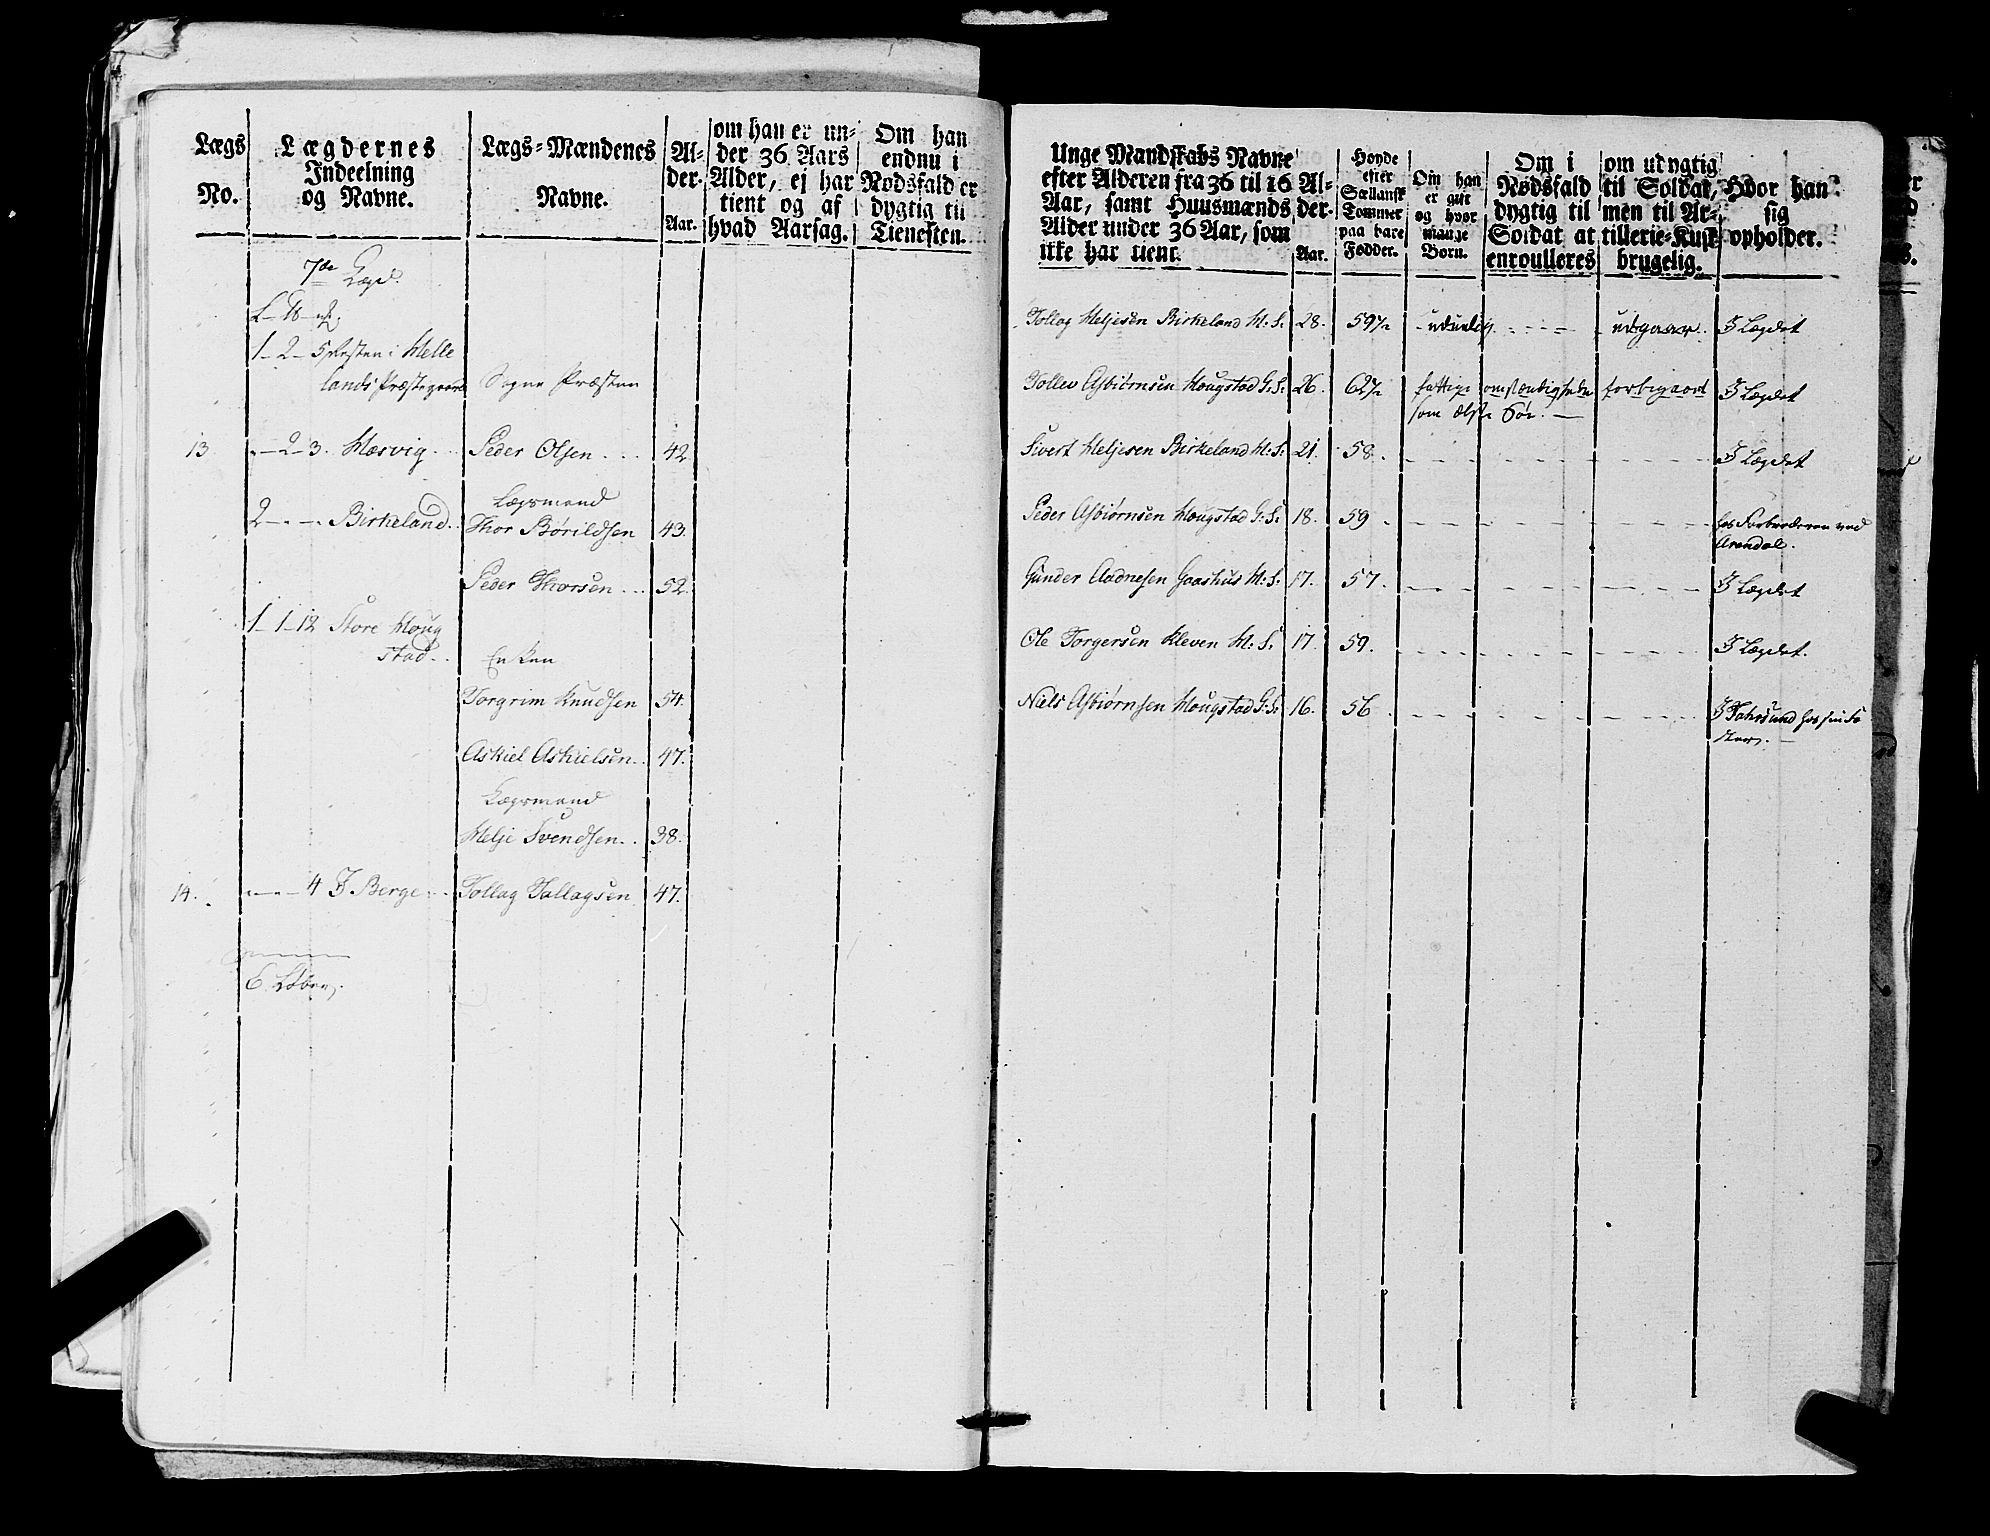 Lægs
No.
Lægdernes
Indeelning
og Navne.
Lægs-Mændenes
Navne.
Al-
der.
Aar.
om han er un-
der 36 Aars
Alder, ej har
tient og af
hvad Aarsag.
Om han
endnu i
Nødsfald er
dygtig til
Tienesten.
7de Lægd.
1-2-5 Resten i Helle
lands Præstegaard Sogne Præsten
13 -2-3. Hæsvig Peder Olsen 42
Lægsmand
2 - - Birkeland Thor Børildsen 43.
Peder Thorsen 52.
1-1-12 Store Houg
stad Enken
Torgrim Knudsen 54.
Askiel Askielsen 47.
Lægsmand
Helje Svendsen 38.
14. - - 4 I Berge Tollag Tallagsen 47.
Unge Mandskabs Navne
efter Alderen fra 36 til 16
Aar, samt Huusmænds
Alder under 36 Aar, som
ikke har tient.
Al-
der.
Aar.
Høyde
efter
Sællansk
Tommer
paa bare
Fødder.
Om han
er gift
og hvor
mange
Børn.
Om i
Nødsfald
dygtig til
Soldat at
enroulleres
om udygtig
til Soldat,
men til Ar-
tillerie-Kusk
brugelig.
Hvor han
sig
opholder.
Tollag Heljesen Birkeland H: S. 28. 59½ uduelig udgaar. I Lægdet
Tollev Asbiørnsen Hougstad G: S. 26. 62½ fattige omstændigheder forbigaaet I Lægdet
som ælste Søn.
Sivert Heljesen Birkeland H: S. 21. 58. I Lægdet
Peder Asbiørnsen Hougstad G: S. 18. 59 hos Farbroderen ved
Arendal.
Gunder Aadnesen Gaashus H: S. 17. 57. I Lægdet
Ole Torgersen Kleven H: S. 17. 59. I Lægdet.
Niels Asbiørnsen Hougstad G: S. 16. 56 I Fahrsund hos sin Sø
ster.